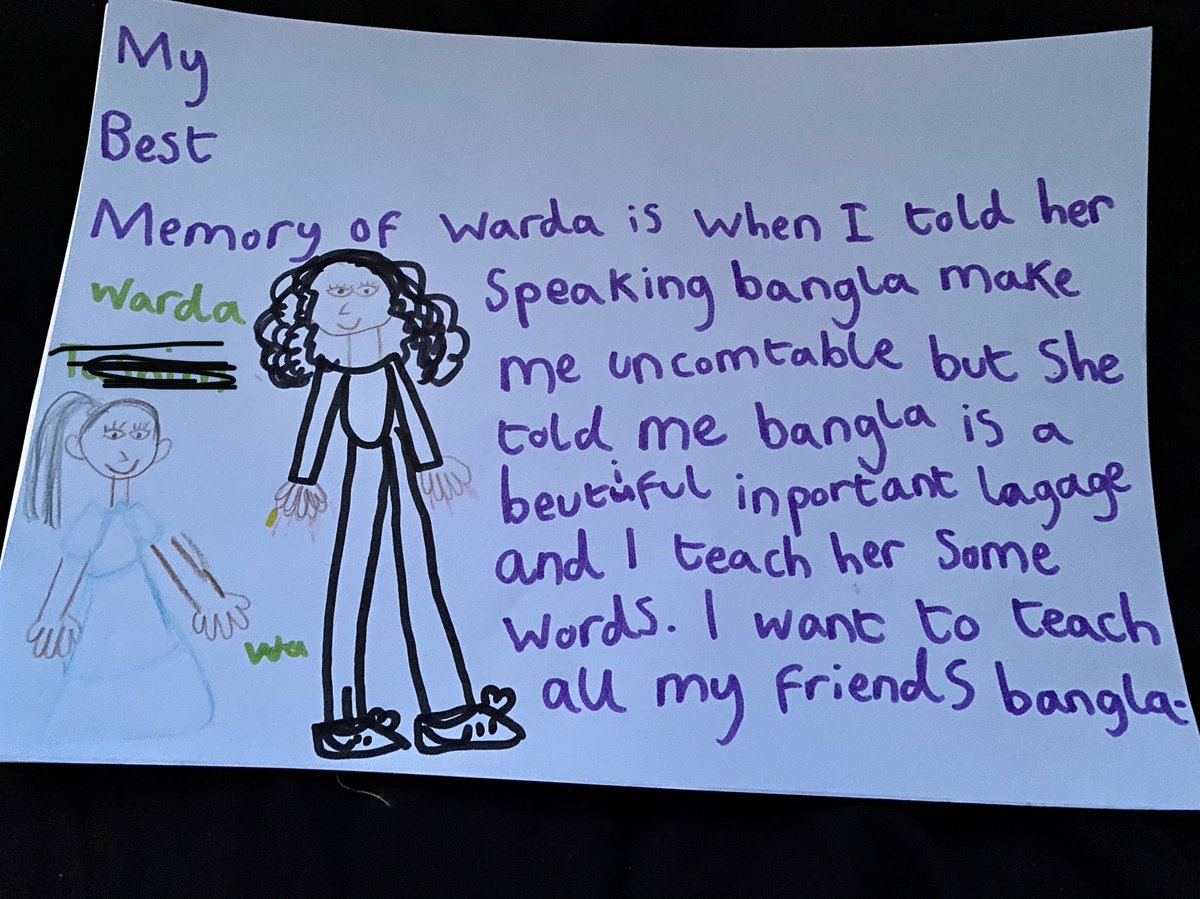 My
Best
Memory of Warda is when I told her
Warda
Speaking bangla make
me uncomtable but She
told me bangla is a
beutiful inportant lagage
and I teach her Some
words. I want to teach
all my friends bangla.
wa